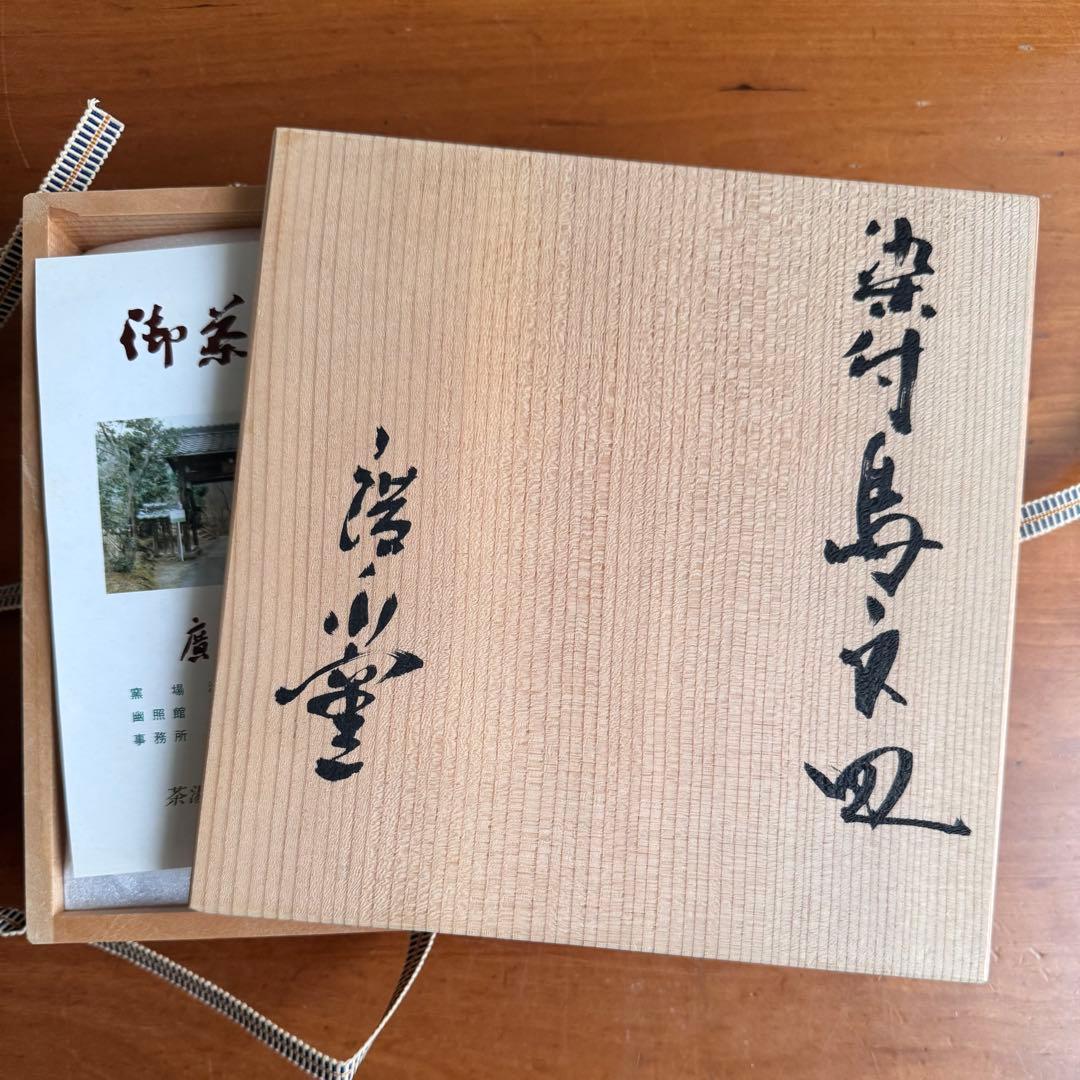 染付鳥文皿
廣永窯
御茶
廣
窯場
幽照館
事務所
茶